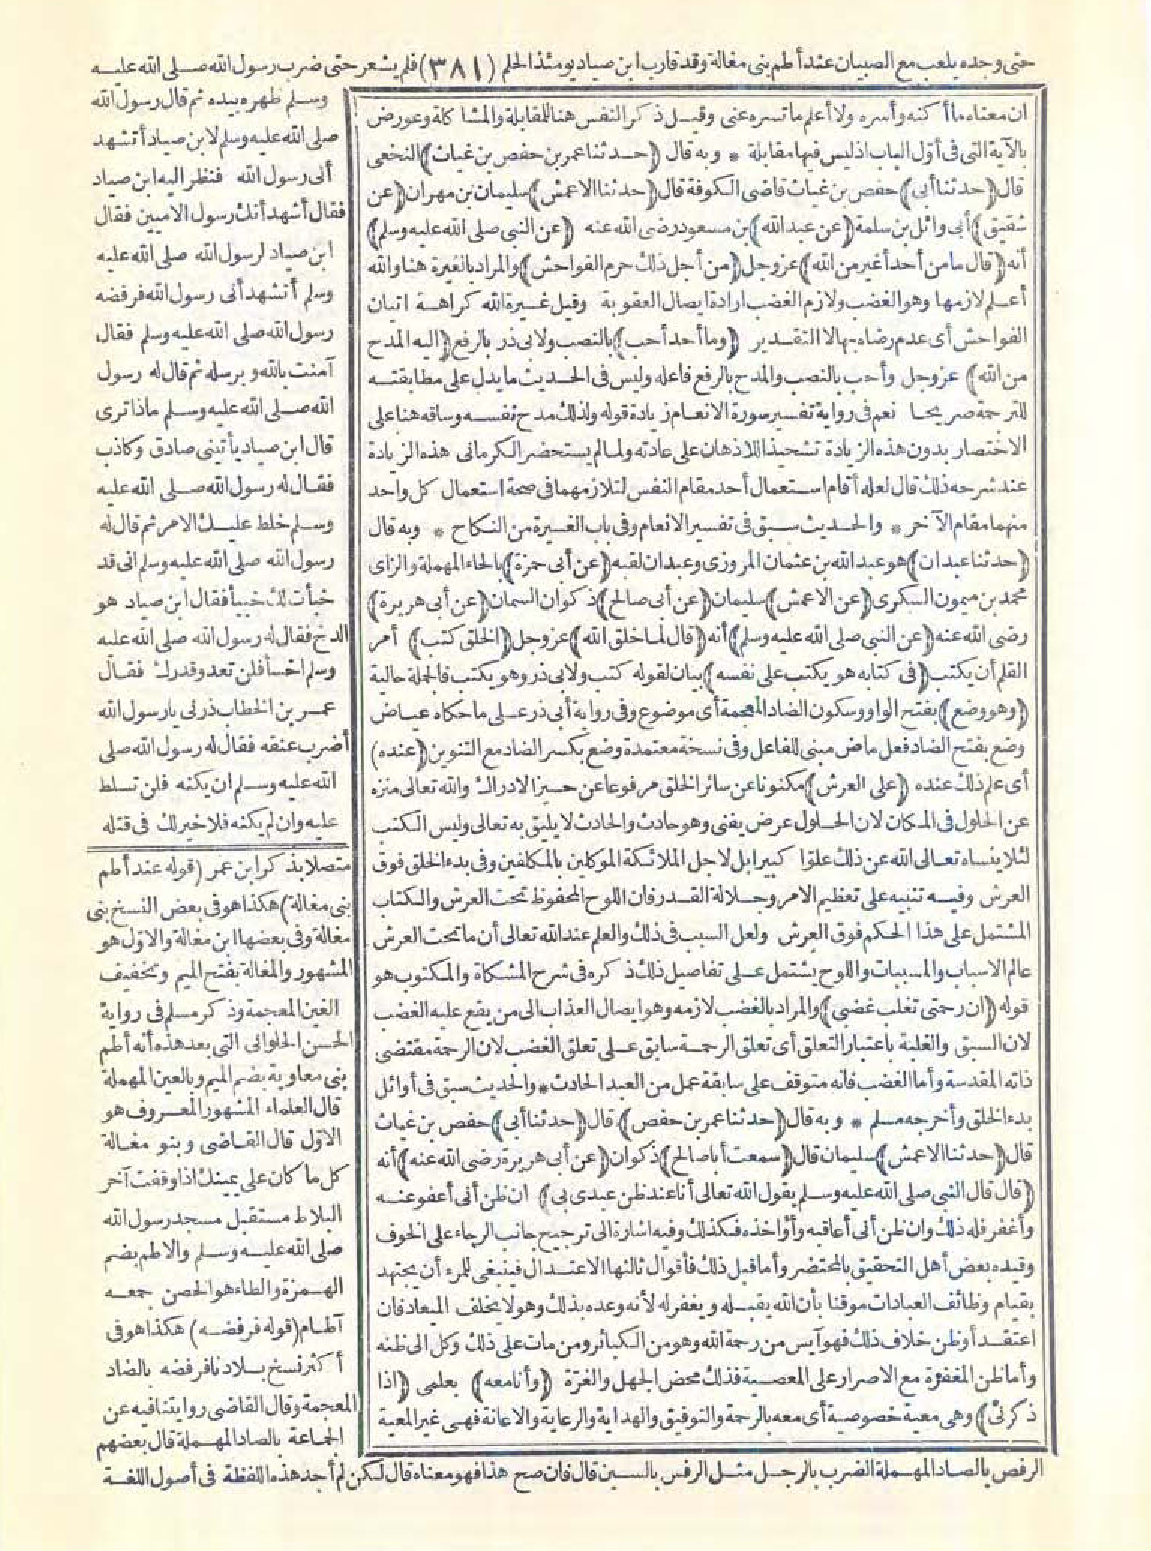 حتى وجده يلعب مع الصبيان عند أطم بنى مغالة وقد قارب ابن صياد يومئذ الحلم (٣٨١) فلم يشعر حتى ضرب رسول الله صلى الله عليه
وسلم ظهره بيده ثم قال رسول الله
صلى الله عليه وسلم لابن صياد أتشهد
أنى رسول الله فنظر اليه ابن صياد
فقال أشهد أنك رسول الاميين فقال
ابن صياد لرسول الله صلى الله عليه
وسلم أتشهد أنى رسول الله فرفضه
رسول الله صلى الله عليه وسلم فقال
آمنت بالله وبرسله ثم قال له رسول
الله صلى الله عليه وسلم ماذا ترى
قال ابن صياد يأتينى صادق وكاذب
فقال له رسول الله صلى الله عليه
وسلم خلط عليك الامر ثم قال له
رسول الله صلى الله عليه وسلم انى قد
خبأت لك خبيأ فقال ابن صياد هو
الدخ فقال له رسول الله صلى الله عليه
وسلم اخسأ فلن تعدو قدرك فقال
عمر بن الخطاب ذرنى يارسول الله
أضرب عنقه فقال له رسول الله صلى
الله عليه وسلم ان يكنه فلن تسلط
عليه وان لم يكنه فلا خير لك فى قتله
ان معناه ما أكنه وأسره ولا أعلم ما تسره عنى وقيل ذكر النفس هنا للمقابلة والمشاكلة وعورض
بالآية التى فى أول الباب اذ ليس فيها مقابلة * وبه قال (حدثنا عمر بن حفص بن غياث) النخعى
قال (حدثنا أبى) حفص بن غياث قاضى الكوفة قال (حدثنا الاعمش) سليمان بن مهران (عن
شقيق) أبى وائل بن سلمة (عن عبد الله) بن مسعود رضى الله عنه (عن النبى صلى الله عليه وسلم)
أنه (قال ما من أحد أغير من الله) عز وجل (من أجل ذلك حرم الفواحش) والمراد بالغيرة هنا والله
أعلم لازمها وهو الغضب ولازم الغضب ارادة ايصال العقوبة وقيل غيرة الله كراهة اتيان
الفواحش أى عدم رضاه بها لا التقدير (وما أحد أحب) بالنصب ولابى ذر بالرفع (اليه المدح
من الله) عز وجل وأحب بالنصب والمدح بالرفع فاعله وليس فى الحديث ما يدل على مطابقته
للترجمة صريحا نعم فى رواية تفسير سورة الانعام زيادة قوله ولذلك مدح نفسه وساقه هنا على
الاختصار بدون هذه الزيادة تشحيذا للاذهان على عادته ولما لم يستحضر الكرمانى هذه الزيادة
عند شرحه ذلك قال لعله أقام استعمال أحد مقام النفس لتلازمهما فى صحة استعمال كل واحد
منهما مقام الآخر * والحديث سبق فى تفسير الانعام وفى باب الغيرة من النكاح * وبه قال
(حدثنا عبدان) هو عبد الله بن عثمان المروزى وعبدان لقبه (عن أبى حمزة) بالحاء المهملة والزاى
محمد بن ميمون السكرى (عن الاعمش) سليمان (عن أبى صالح) ذكوان السمان (عن أبى هريرة)
رضى الله عنه (عن النبى صلى الله عليه وسلم) أنه (قال لما خلق الله) عز وجل (الخلق كتب) أمر
القلم أن يكتب (فى كتابه هو يكتب على نفسه) بيان لقوله كتب ولابى ذر وهو يكتب فالجملة حالية
(وهو وضع) بفتح الواو وسكون الضاد المعجمة أى موضوع وفى رواية أبى ذر على ما حكاه عياض
وضع بفتح الضاد فعل ماض مبنى للفاعل وفى نسخة معتمدة وضع بكسر الضاد مع التنوين (عنده)
أى علم ذلك عنده (على العرش) مكنونا عن سائر الخلق مرفوعا عن حيز الادراك والله تعالى منزه
عن الحلول فى المكان لان الحلول عرض يفنى وهو حادث والحادث لا يليق به تعالى وليس الكتب
لئلا ينساه تعالى الله عن ذلك علوا كبيرا بل لاجل الملائكة الموكلين بالمكلفين وفى بدء الخلق فوق
العرش وفيه تنبيه على تعظيم الامر وجلالة القدر فان اللوح المحفوظ تحت العرش والكتاب
المشتمل على هذا الحكم فوق العرش ولعل السبب فى ذلك والعلم عند الله تعالى أن ما تحت العرش
عالم الاسباب والمسببات واللوح يشتمل على تفاصيل ذلك ذكره فى شرح المشكاة والمكتوب هو
قوله (ان رحمتى تغلب غضبى) والمراد بالغضب لازمه وهو ايصال العذاب الى من يقع عليه الغضب
لان السبق والغلبة باعتبار التعلق أى تعلق الرحمة سابق على تعلق الغضب لان الرحمة مقتضى
ذاته المقدسة وأما الغضب فانه متوقف على سابقة عمل من العبد الحادث * والحديث سبق فى أوائل
بدء الخلق وأخرجه مسلم * وبه قال (حدثنا عمر بن حفص) قال (حدثنا أبى) حفص بن غياث
قال (حدثنا الاعمش) سليمان قال (سمعت أبا صالح) ذكوان (عن أبى هريرة رضى الله عنه) أنه
(قال قال النبى صلى الله عليه وسلم يقول الله تعالى أنا عند ظن عبدى بى) ان ظن أنى أعفو عنه
وأغفر فله ذلك وان ظن أنى أعاقبه وأؤاخذه فكذلك وفيه اشارة الى ترجيح جانب الرجاء على الخوف
وقيده بعض أهل التحقيق بالمحتضر وأما قبل ذلك فأقوال ثالثها الاعتدال فينبغى للمرء أن يجتهد
بقيام وظائف العبادات موقنا بأن الله يقبله ويغفر له لأنه وعده بذلك وهو لا يخلف الميعاد فان
اعتقد أو ظن خلاف ذلك فهو آيس من رحمة الله وهو من الكبائر ومن مات على ذلك وكل الى ظنه
وأما ظن المغفرة مع الاصرار على المعصية فذلك محض الجهل والغرة (وأنا معه) بعلمى (اذا
ذكرنى) وهى معية خصوصية أى معه بالرحمة والتوفيق والهداية والرعاية والاعانة فهى غير المعية
متصلا بذكر ابن عمر (قوله عند أطم
بنى مغالة) هكذا هو فى بعض النسخ بنى
مغالة وفى بعضها ابن مغالة والاول هو
المشهور والمغالة بفتح الميم وتخفيف
الغين المعجمة وذكر مسلم فى رواية
الحسن الحلوانى التى بعد هذه أنه أطم
بنى معاوية بضم الميم وبالعين المهملة
قال العلماء المشهور المعروف هو
الاول قال القاضى وبنو مغالة
كل ما كان على يمينك اذا وقفت آخر
البلاط مستقبل مسجد رسول الله
صلى الله عليه وسلم والاطم بضم
الهمزة والطاء هو الحصن جمعه
آطام (قوله فرفضه) هكذا هو فى
أكثر نسخ بلادنا فرفضه بالضاد
المعجمة وقال القاضى روايتنا فيه عن
الجماعة بالصاد المهملة قال بعضهم
الرفص بالصاد المهملة الضرب بالرجل مثل الرفس بالسين قال فان صح هذا فهو معناه قال لكن لم أجد هذه اللفظة فى أصول اللغة